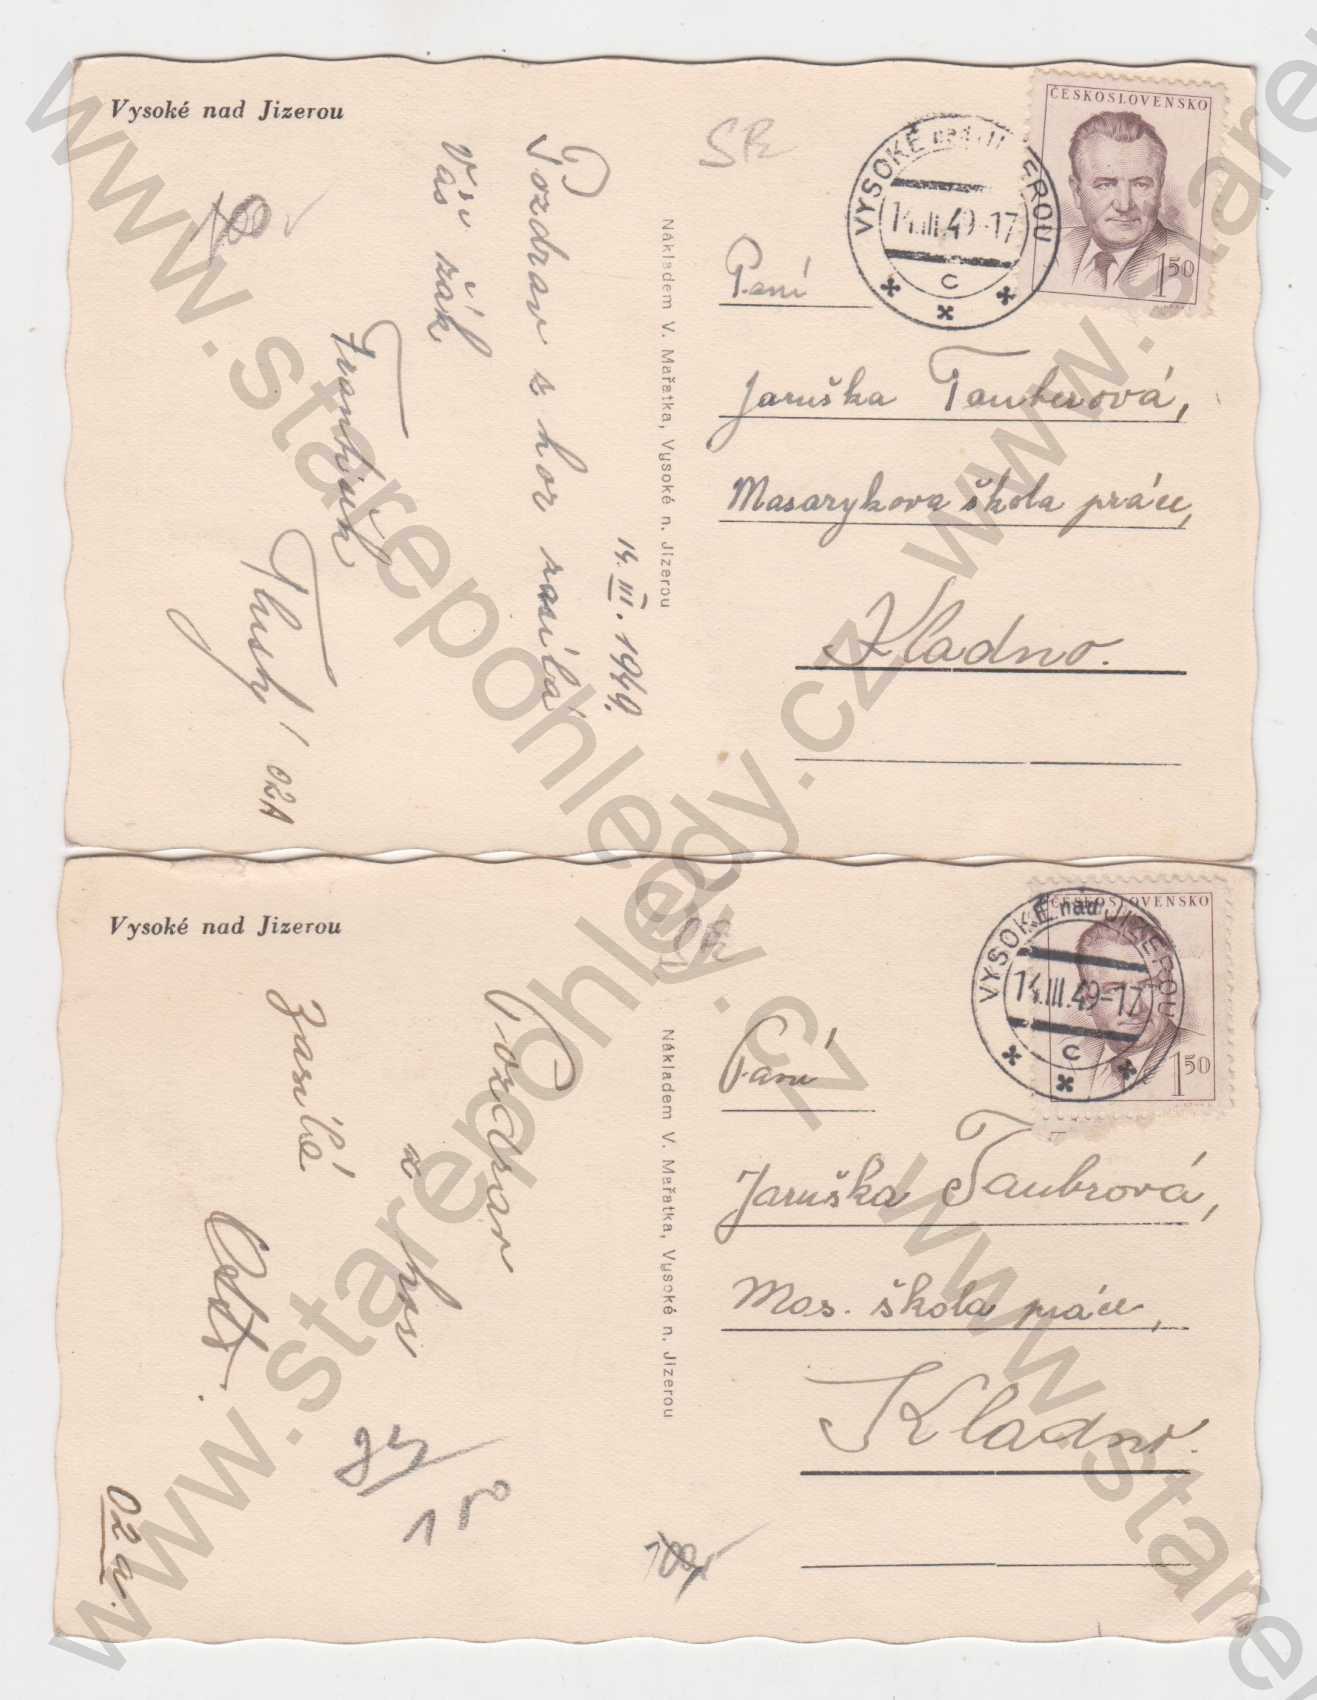 Vysoké nad Jizerou
Pozdrav z hor zasílá
Váš žák
Váši
František
Tluský 02A
14. III. 1949.
Nákladem V. Mařatka, Vysoké n. Jizerou
SR
VYSOKÉ nad JIZEROU
14.III.49-17
C
ČESKOSLOVENSKO
1 50
Paní
Jaruška Tauberová,
Masarykova škola práce,
Kladno.
Vysoké nad Jizerou
Pozdrav
z hor
zasílá
02a.
Nákladem V. Mařatka, Vysoké n. Jizerou
VYSOKÉ nad JIZEROU
14.III.49-17
C
ČESKOSLOVENSKO
1 50
Paní
Jaruška Taubrová,
Mas. škola práce,
Kladno.
www.starepohledy.cz
www.starepohledy.cz